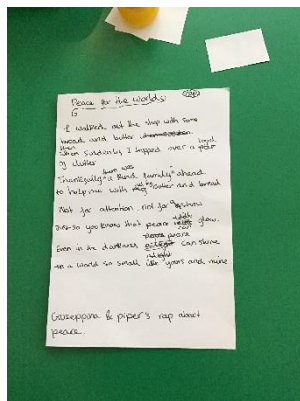 Peace for the worlds:
I walked out the shop with some
bread and butter
then
When suddenly I tripped over a
of clutter
there was
Thankfully a kind family ahead
to help me with my butter and bread
Not for attention, not for a show
Just so you know that peace will glow.
Even in the darkness peace can shine
In a world so small like yours and mine
Giuseppina & piper's rap about
peace.